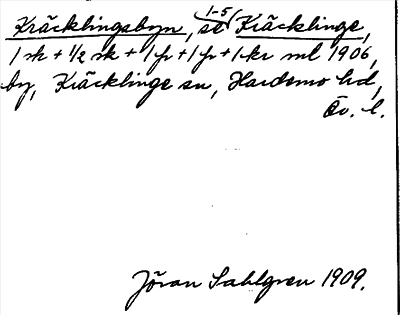 1-5
Kräcklingsbyn, se Kräcklinge,
1 sk + 1/2 sk + 1 fr + 1 fr + 1 kr ml 1906,
by, Kräcklinge sn, Hardemo hd,
Ör. l.
Jöran Sahlgren 1909.